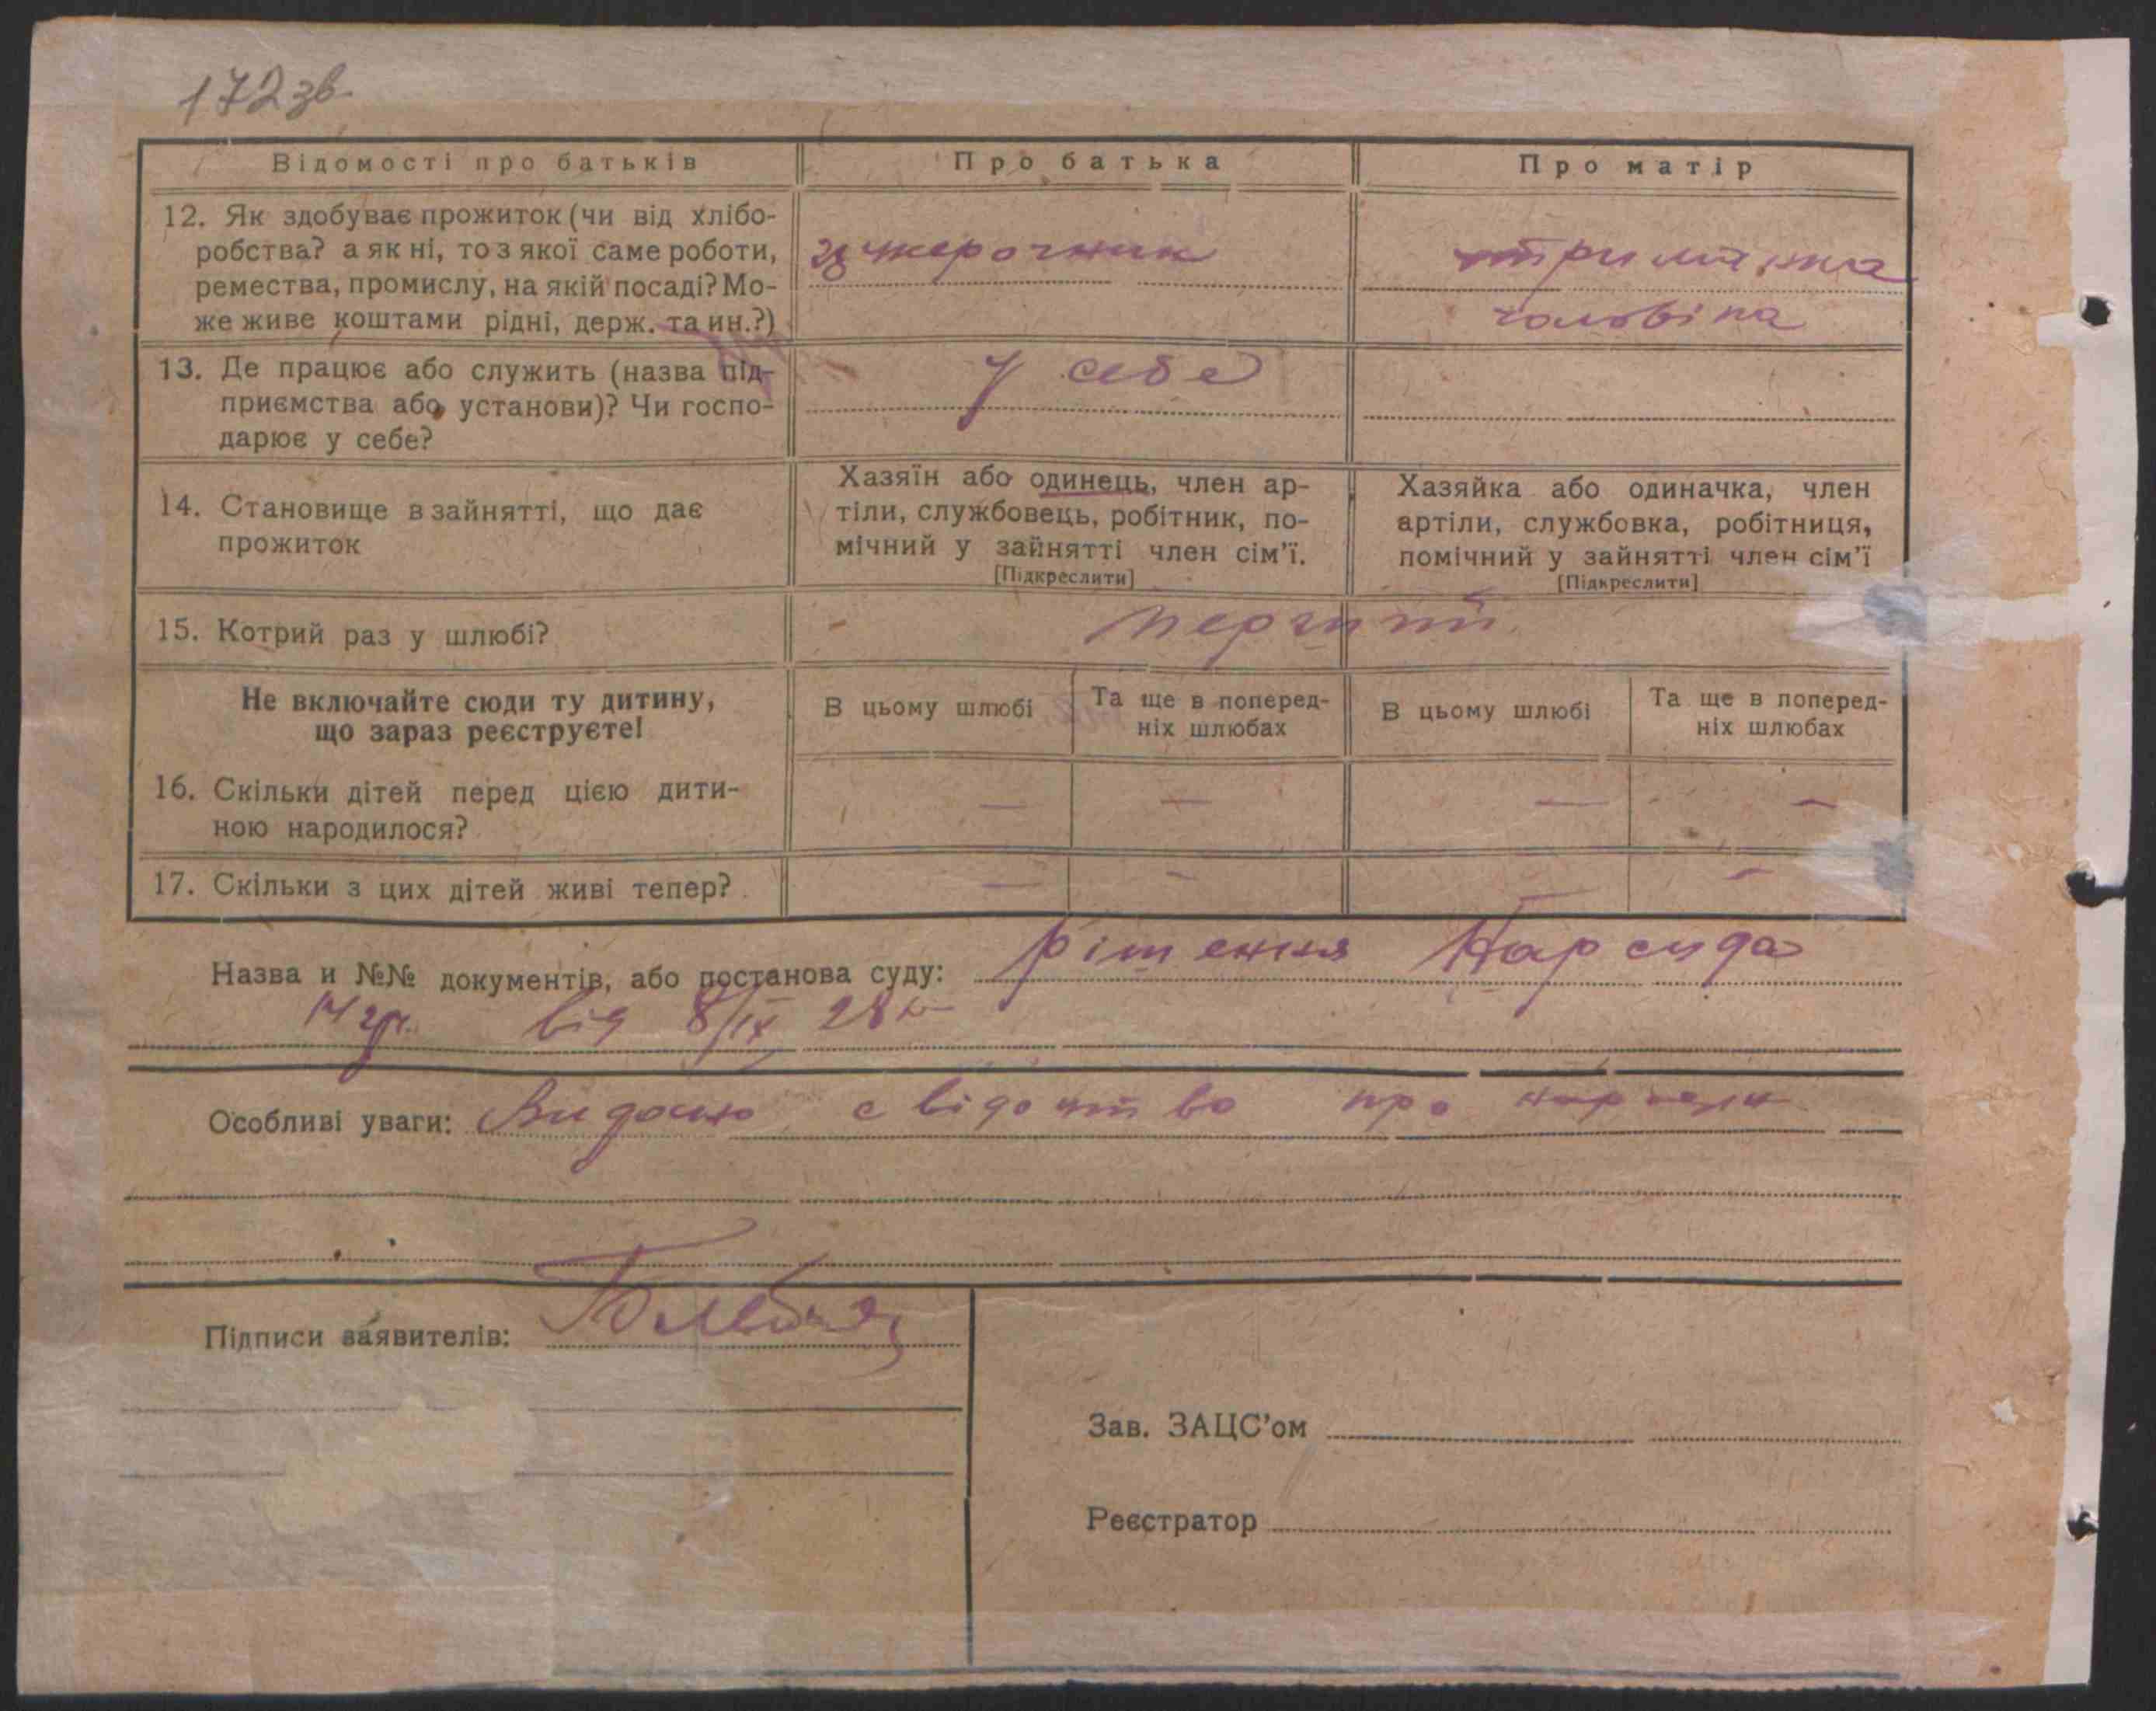 172 зв.
Відомості про батьків
Про батька
Про матір
12. Як здобуває прожиток (чи від хлібо-
робства? а як ні, то з якої саме роботи,
ремества, промислу, на якій посаді? Мо-
же живе коштами рідні, держ. та ин.?)
цукерочник
утриманка
чоловіка
13. Де працює або служить (назва під-
приємства або установи)? Чи госпо-
дарює у себе?
у себе
14. Становище в зайнятті, що дає
прожиток
Хазяїн або одинець, член ар-
тіли, службовець, робітник, по-
мічний у зайнятті член сім'ї.
[Підкреслити]
Хазяйка або одиначка, член
артіли, службовка, робітниця,
помічний у зайнятті член сім'ї
[Підкреслити]
15. Котрий раз у шлюбі?
перший
Не включайте сюди ту дитину,
що зараз реєструєте!
В цьому шлюбі
Та ще в поперед-
ніх шлюбах
В цьому шлюбі
Та ще в поперед-
ніх шлюбах
16. Скільки дітей перед цією дити-
ною народилося?
— — — —
17. Скільки з цих дітей живі тепер?
— — — —
Назва и №№ документів, або постанова суду: рішення Нарсуда
від 8/IX 28
Особливі уваги: Видано свідоцтво про
Підписи заявителів:
Зав. ЗАЦС'ом
Реєстратор